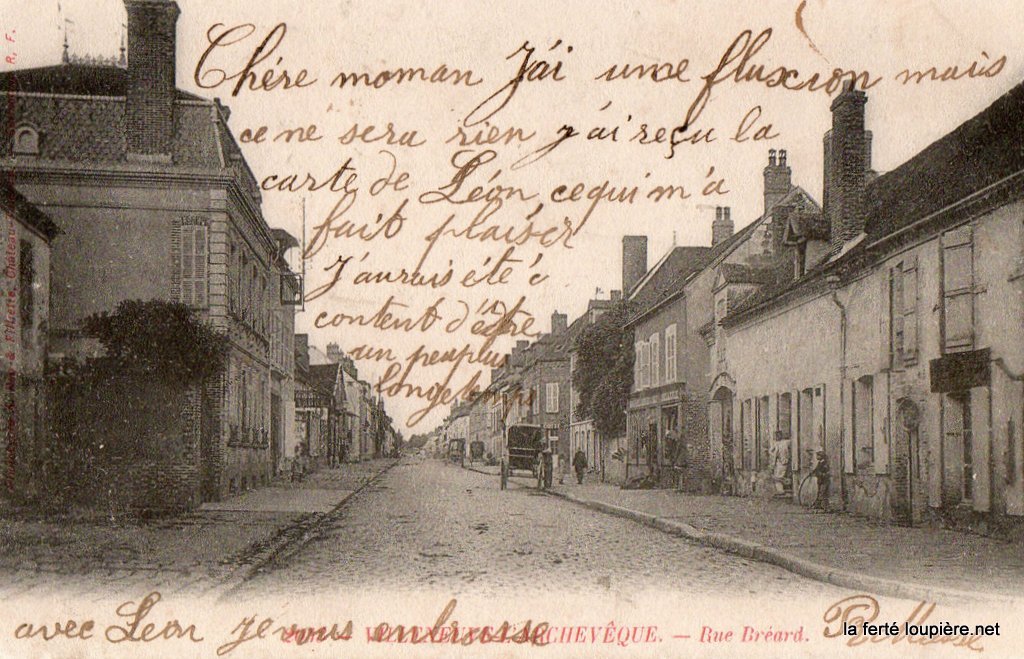 Chére moman J'ai une fluxcion mais
ce ne sera rien j'ai reçu la
carte de Léon, ce qui m'a
fait plaisir
J'aurais été
content d'être
un peu plus
longtemps
avec Léon Je vous embrasse
VILLENEUVE-L'ARCHEVÊQUE. — Rue Bréard.
la ferté loupière.net
R. F.